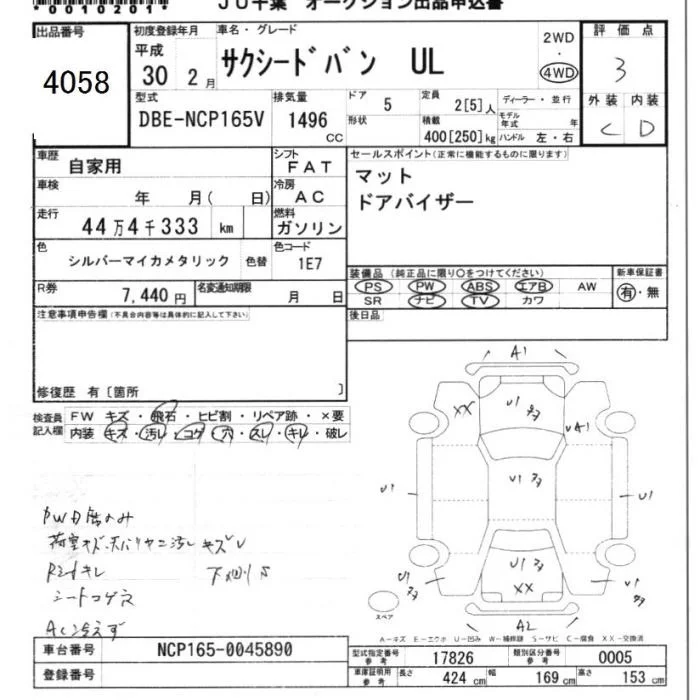 *0010201*
JU千葉 オークション出品申込書
出品番号 4058
初度登録年月 平成 30 2月
車名・グレード サクシードバン UL
2WD・4WD
評価点 3
型式 DBE-NCP165V
排気量 1496 CC
ドア 5
形状
定員 2[5]人
積載 400[250]kg
ディーラー・並行
モデル年式 年
ハンドル 左・右
外装 C 内装 D
車歴 自家用
シフト FAT
車検 年 月( 日)
冷房 AC
走行 44万4千333 km
燃料 ガソリン
色 シルバーマイカメタリック 色替
色コード 1E7
R券 7,440円
名変通知期限 月 日
セールスポイント(正常に機能するものに限ります)
マット
ドアバイザー
装備品(純正品に限り○をつけてください)
PS PW ABS エアB AW
SR ナビ TV カワ
新車保証書 有・無
後日品
注意事項申告欄(不具合内容等は具体的に記入して下さい)
修復歴 有〔箇所 〕
検査員記入欄
FW キズ・飛石・ヒビ割・リペア跡・×要
内装 キズ・汚レ・コゲ・穴・スレ・キレ・破レ
シートコゲ穴
AC冷えず
A1
XX U1
UA1
U1
U1
U1
U1
XX
U1
U1
A2
スペア
A-キズ E-エクボ U-凹み W-補修跡 S-サビ C-腐食 XX-交換済
車台番号 NCP165-0045890
登録番号
型式指定番号 参考 17826
類別区分番号 参考 0005
車庫証明用 参考 長さ 424 cm 幅 169 cm 高さ 153 cm